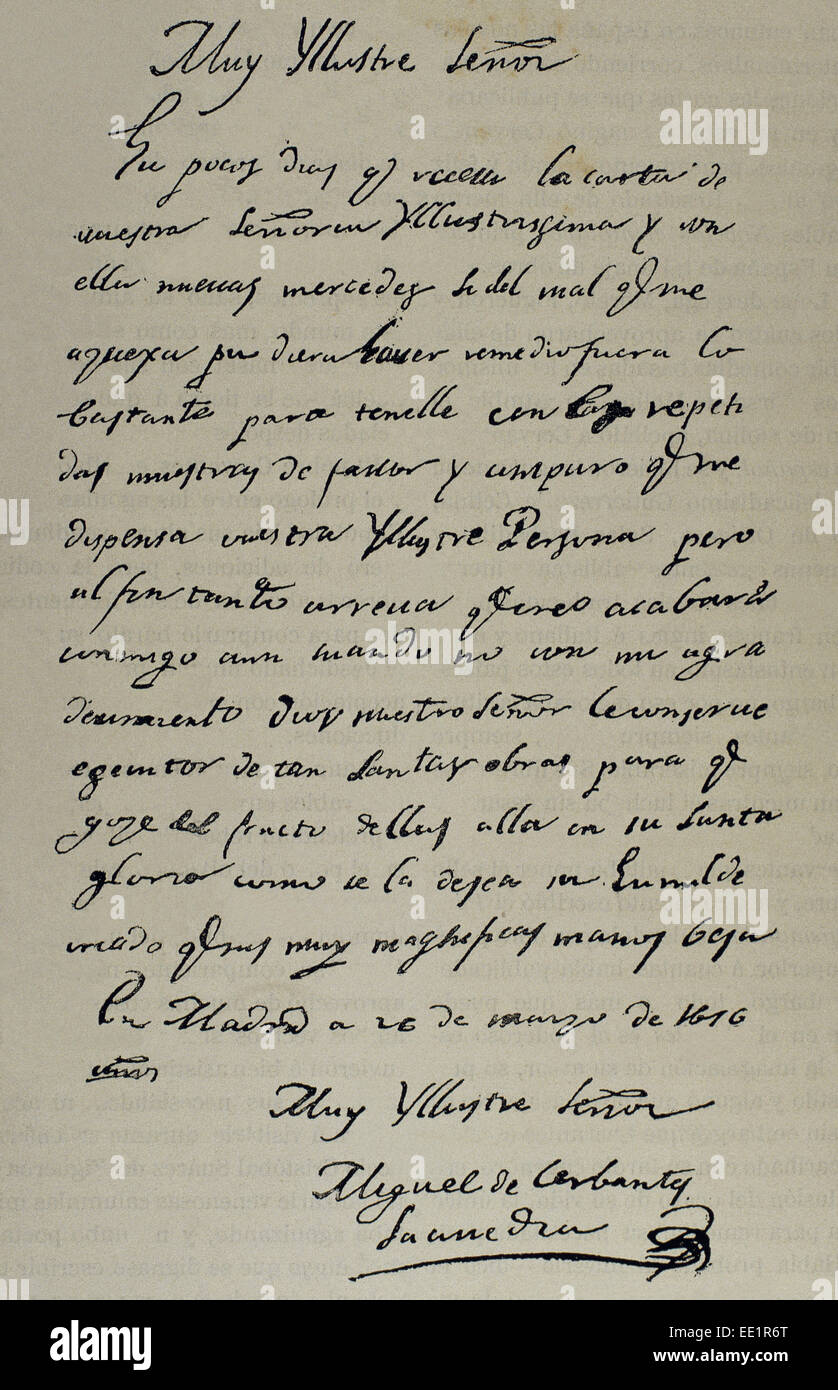 Muy Yllustre Señor
Ha pocos dias q̃ recebi la carta de
vuestra Señoria Yllustrissima y con
ella nueuas mercedes Si del mal q̃ me
aquexa pudiera hauer remedio fuera lo
bastante para tenelle con las repeti
das muestras de fauor y amparo q̃ me
dispensa vuestra Yllustre Persona pero
al fin tanto arrecia q̃ creo acabará
conmigo aun cuando no con mi agra
decimiento Dios nuestro Señor le conserue
egecutor de tan Santas obras para q̃
goze del fructo dellas alla en su Santa
gloria como se la desea su humilde
criado q̃ sus muy magnificas manos besa
En Madrid a 26 de marzo de 1616
años
Muy Yllustre Señor
Miguel de Cerbantes
Saauedra
alamy
www.alamy.com
EE1R6T